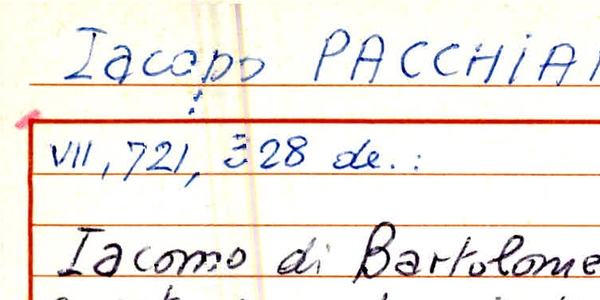 Iacopo PACCHIA
VII, 721, 328 de.:
Iacomo di Bartolome